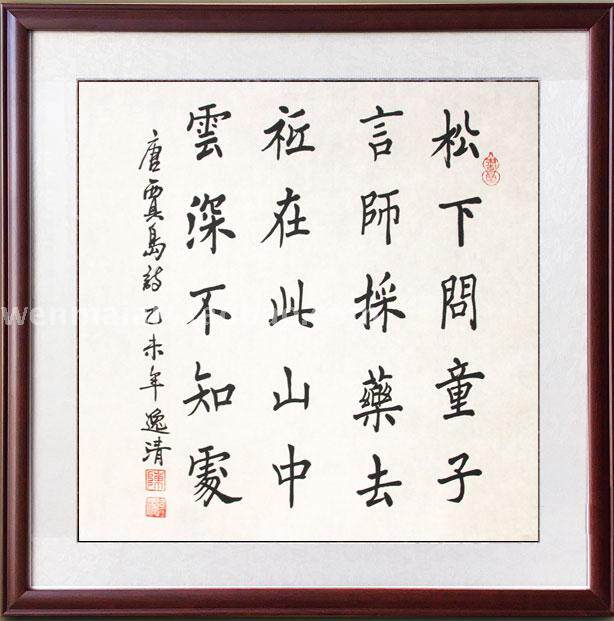 松下問童子
言師採藥去
祇在此山中
雲深不知處
唐賈島詩乙未年逸清
陳
wenmai